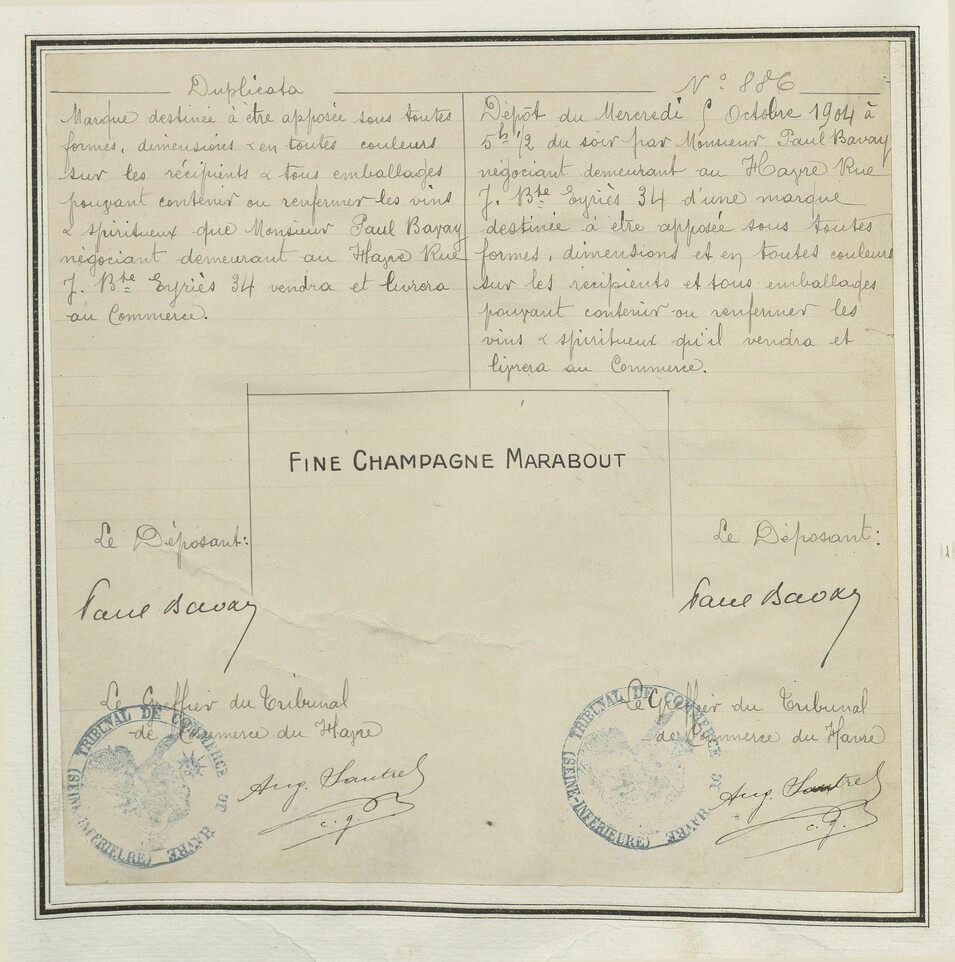 Duplicata
Marque destinée à être apposée sous toutes
formes, dimensions & en toutes couleurs
sur les récipients & tous emballages
pouvant contenir ou renfermer les vins
& spiritueux que Monsieur Paul Bavay
négociant demeurant au Havre Rue
J. Bte Eyriès 34 vendra et livrera
au Commerce.
N° 886
Dépôt du Mercredi 5 Octobre 1904 à
5h 1/2 du soir par Monsieur Paul Bavay
négociant demeurant au Havre Rue
J. Bte Eyriès 34 d'une marque
destinée à être apposée sous toutes
formes, dimensions et en toutes couleurs
sur les récipients et tous emballages
pouvant contenir ou renfermer les
vins & spiritueux qu'il vendra et
livrera au Commerce.
FINE CHAMPAGNE MARABOUT
Le Déposant:
Paul Bavay
Le Déposant:
Paul Bavay
Le Greffier du Tribunal
de Commerce du Havre
Aug. Lautrel
c.g.
TRIBUNAL DE COMMERCE DU HAVRE (SEINE-INFÉRIEURE)
Le Greffier du Tribunal
de Commerce du Havre
Aug. Lautrel
c.g.
TRIBUNAL DE COMMERCE DU HAVRE (SEINE-INFÉRIEURE)